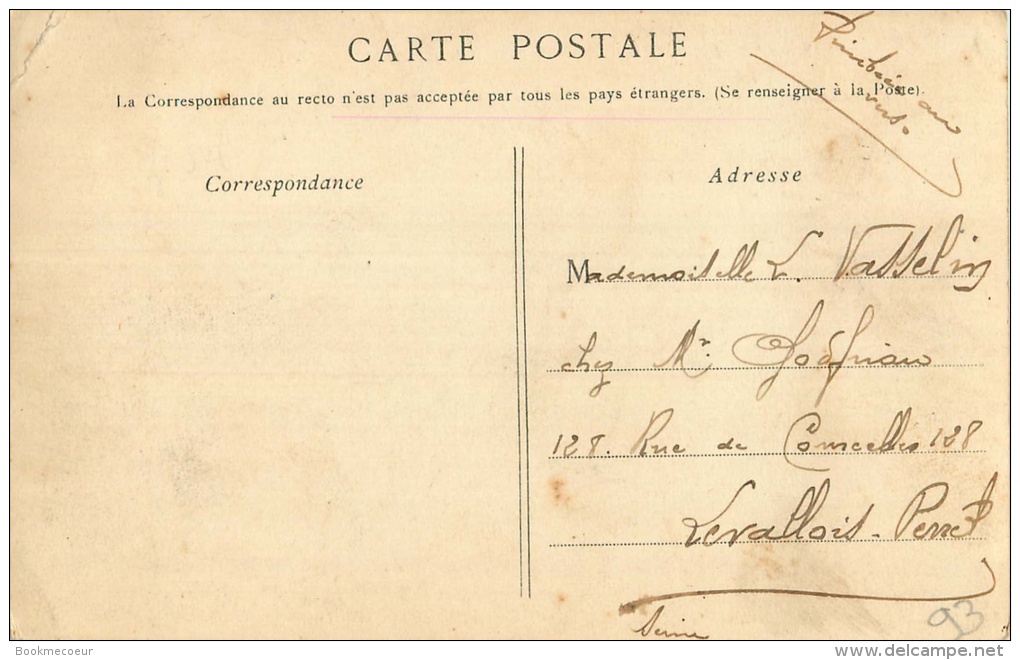 CARTE POSTALE
au
verso
La Correspondance au recto n'est pas acceptée par tous les pays étrangers. (Se renseigner à la Poste).
Correspondance
Adresse
Mademoiselle L. Vasselin
chez Mr.
128. Rue de Courcelles 128
Levallois-Perret
Seine
93
Bookmecoeur
www.delcampe.net